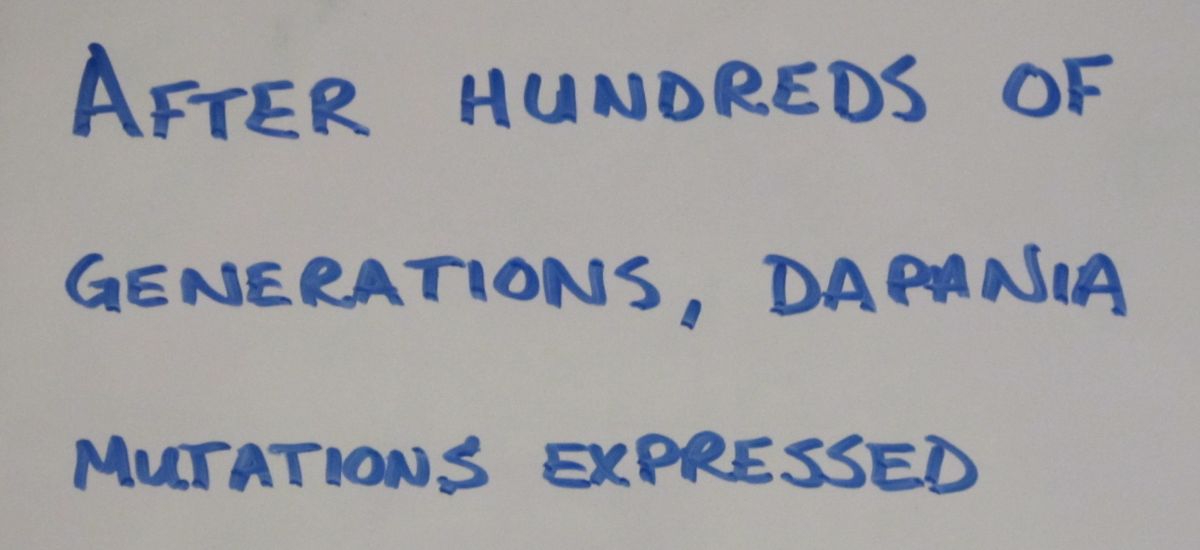 AFTER HUNDREDS OF
GENERATIONS, DAPANIA
MUTATIONS EXPRESSED